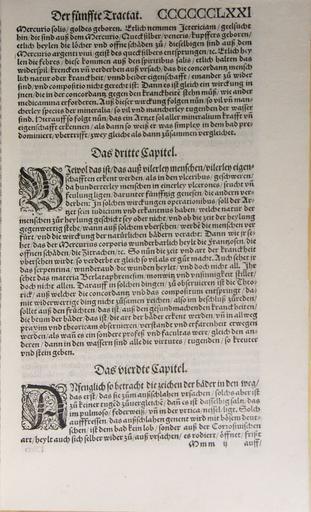 Der fünffte Tractat. CCCCCCLXXI
Mercurio solis/ goldes geboren. Etlich nemmen Ictericiam/ geelsucht
hin/ die sind auß dem Mercurio/ Quecksilber veneris/ kupffers geboren/
etlich heylen die löcher vnd offne schäden zu/ dieselbigen sind auß dem
Mercurio argenti viui/ geist des quecksilbers entsprungen/ ꝛc. Etlich hey
len die febres/ diese kommen auß den spiritibus salis/ etlich halten das
widerspil/ krencken vñ verderben auß vrsach/ das die concordantz mensch
lich natur oder kranckheit/ vnnd beider eigenschafft/ einander zů wider
sind/ vnd compositio nicht gerecht ist: Dann es ist gleich ein wirckung in
jnen/ die in der concordantz gegen den kranckheitē stehn müß/ wie ander
medicamina erfordern. Auß dieser wirckung folgen nũn/ so vil vñ man-
cherley species der mineralia/ so vil vnd mancherley tugenden der wasser
sind. Hierauff so folgt nũn/ das ein Artzet sol aller mineralium krafft vñ
eigenschafft erkennen/ als dann so weiß er was simplex in dem bad pre-
dominiert/ vbertrifft/ zwey gleiche als dann zůsammen vergleichet.
Das dritte Capitel.
WJewol das ist/ das auß vilerley menschen/ vilerley eigen-
schafften erkent werden/ als in den vlceribus/ geschweren/
da hunderterley menschen in einerley vlcerones/ seucht vñ
feulung ligen/ darunter fünfftzig genesen/ die andern ver-
derben: Jn solchen wirckungen operationibus/ soll der Ar-
tzet sein iudicium vnd erkantnus haben/ welche natur der
menschen zur heylung geschickt sey oder nicht/ vnd ob die zeit der heylung
gegenwertig stehe/ wann auß solchem vbersehen/ werdē die menschen ver
fürt/ vnd die wirckung der natürlichen bädern veracht: Dann wie je se-
het/ das der Mercurius corporis wunderbarlich heylt die Frantzosen/ die
offnen schäden/ die Zitrachen/ ꝛc. So nũn die zeit vnd art der kranckheit
vbersehen wirdt/ so verderbt er gleich so vil als er gůt macht. Auch sehet jr
das serpentina/ wundtraud/ die wunden heylet/ vnd doch nicht all: Jhr
sehet das materia Perlata phrenesim/ monwitz vnd vnsinnigkeit stillet/
doch nicht allen. Darauff in solchen dingen/ zů obseruieren ist die Theo-
rick/ auß welcher die concordantz vnd das compositum entspringt/ das
nit widerwertig ding nicht zůsamen reichen/ also im beschluß zůreden/
sollet auß den früchten/ das ist/ auß den gesundmachenden kranckheiten/
die brunn der bäder/ das ist/ die art der bäder erkent werden/ vñ in all weg
praxim vnd theoricam obseruieren/ verstande vnd erfarenheit erwegen
werden/ als wañ es ein sonder profeß vnd facultas were/ gleich den an-
deren/ dann in den wassern sind alle die virtutes/ tugenden/ so kreuter
vnd stein geben.
Das vierdte Capitel.
ANfenglich so betracht die zeichen der bäder in den weg/
das erst/ das sie zům außschlahen vrsachen/ solchs aber ist
zů keiner tugēd zůuergleichē/ dañ es ist dasselbig saltz/ das
im pulmoso/ federweiß/ vñ in der vrtica/ nessel/ ligt. Solch
aufffressen/ das außschlahen genent wird mit bösem deut-
schen/ ist dem bad kein lob/ sonder auß der Corrosiuischen
art/ heylt auch sich selber wider zů/ auß vrsachen/ es rodiert/ öffnet/ frißt
Mmm ij auff/